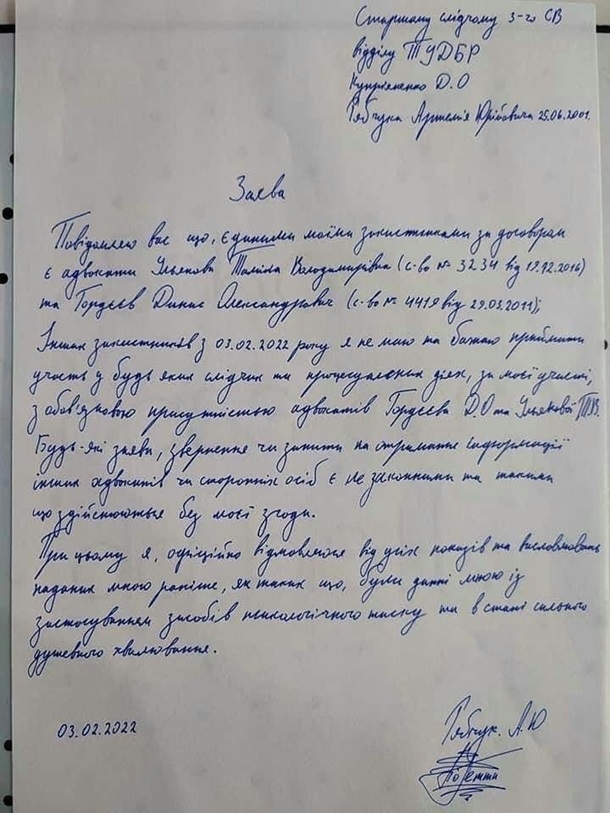 Старшому слідчому 3-го СВ
відділу ТУДБР
Купрієненко Д.О
Рябчука Артемія Юрійовича 25.06.2001.
Заява
Повідомляю вас що, єдиними моїми захистниками за договорам
є адвокати Ільякова Таміла Володимирівна (с-во № 3234 від 19.12.2016)
та Гордєєв Динис Олександрович (с-во № 4419 від 29.03.2011);
Інших захистників з 03.02.2022 року я не маю та бажаю приймати
участь у будь яких слідчих та процесуальних діях, за моєї участі,
з обов'язковою присутністью адвокатів Гордєєва Д.О та Ільякової Т.В.
Будь-які заяви, звернення чи запити на отримання інформації
інших адвокатів чи сторонніх осіб є не законними та такими
що здійснюються без моєї згоди.
При цьому я, офіційно відмовляюся від усіх показів та висловлювань
наданих мною раніше, як таких що, були данні мною із
застосуванням засобів психологічного тиску та в стані сильного
душевного хвилювання.
03.02.2022
Рябчук. А.Ю